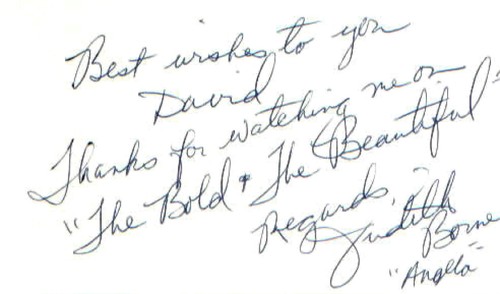 Best wishes to you
David
Thanks for watching me on
"The Bold & The Beautiful"
Regards,
Judith
Borne
"Angela"